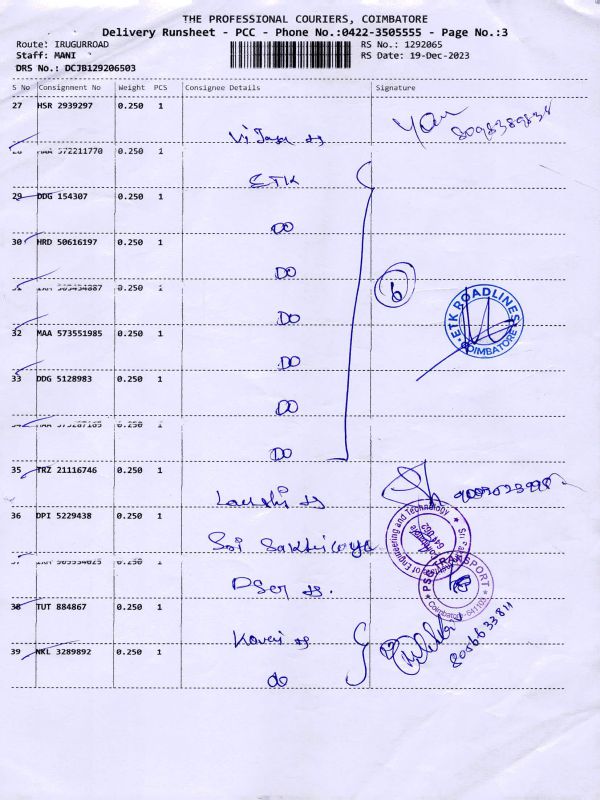 THE PROFESSIONAL COURIERS, COIMBATORE
Delivery Runsheet - PCC - Phone No.:0422-3505555 - Page No.:3
Route: IRUGURROAD RS No.: 1292065
Staff: MANI RS Date: 19-Dec-2023
DRS No.: DCJB129206503
S No Consignment No Weight PCS Consignee Details Signature
27 HSR 2939297 0.250 1
28 MAA 572211770 0.250 1
ETK
29 DDG 154307 0.250 1
DO
30 HRD 50616197 0.250 1
DO
31 0.250 1
DO
6
ETK ROADLINES
COIMBATORE
32 MAA 573551985 0.250 1
DO
33 DDG 5128983 0.250 1
DO
34 MAA 0.250 1
DO
35 TRZ 21116746 0.250 1
36 DPI 5229438 0.250 1
Sri
of Engineering and Technology
641 062
37 0.250 1
PSG TRANSPORT
Coimbatore
38 TUT 884867 0.250 1
Kovai
8056633811
39 NKL 3289892 0.250 1
do